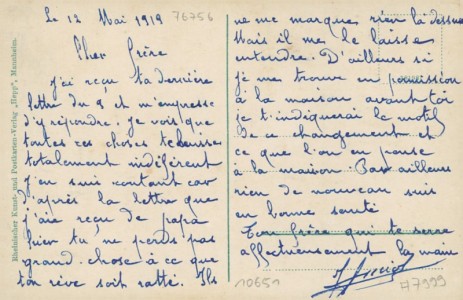 Le 12 Mai 1919
76756
Cher frère
j'ai reçu ta dernière
lettre du 9 et m'empresse
d'y répondre. Je vois que
toutes ces choses te laisse
totalement indiférent
J'en suis content car
d'après la lettre que
j'aie reçu de papa
hier tu ne perds pas
grand chose à ce que
ton rêve soit ratté. Ils
ne me marque rien là dessus
Mais il me le laisse
entendre. D'ailleurs si
je me trouve en permission
à la maison avant toi
je t'indiquerai le motif
de ce changement et
ce que l'on en pense
à la maison. Pas ailleurs
rien de nouveau suis
en bonne santé
Ton frère qui te serre
affectueusement la main
10651
47999
Rheinischer Kunst- und Postkarten-Verlag „Hepp", Mannheim.